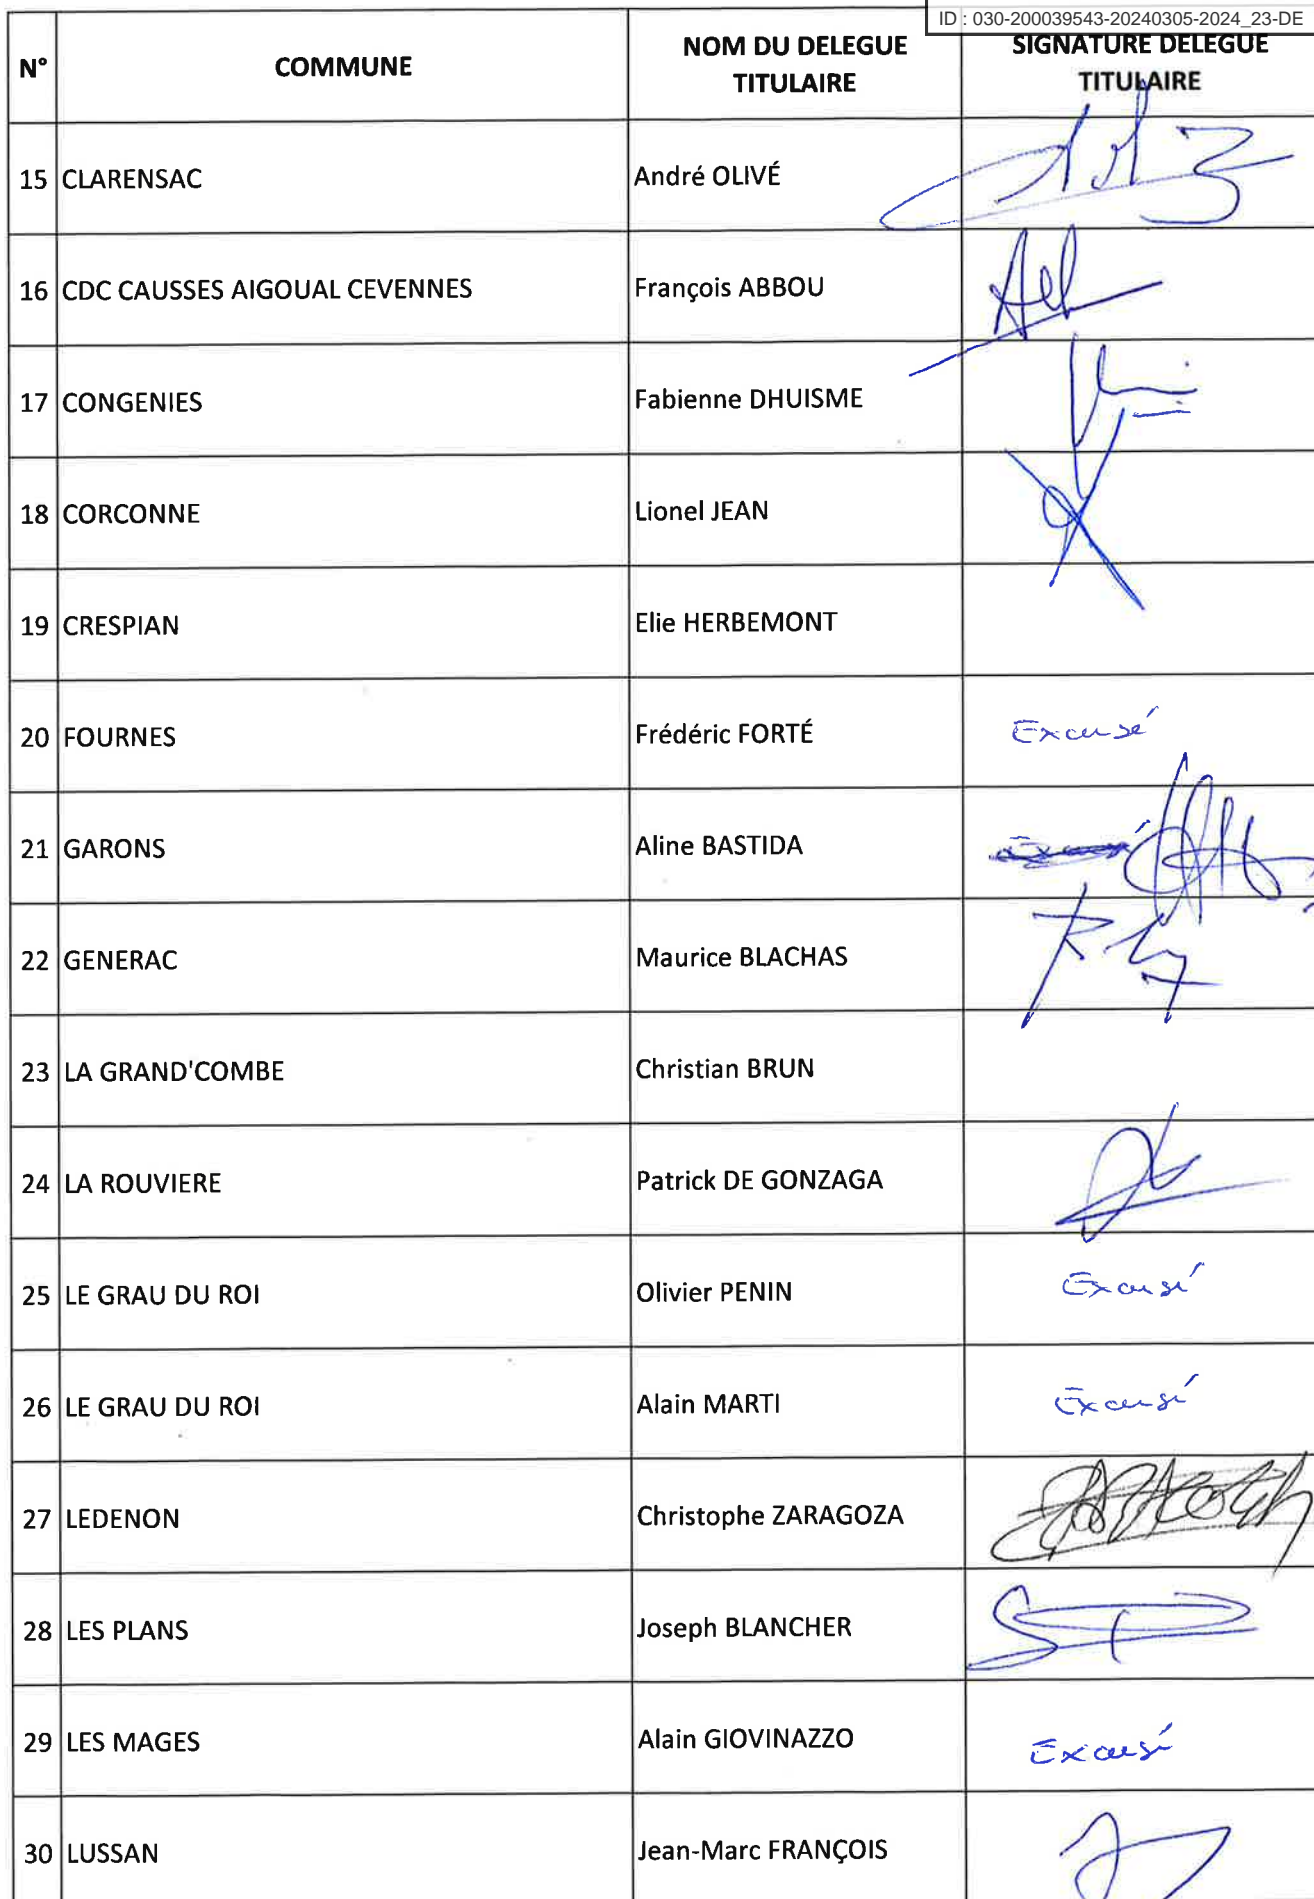 ID : 030-200039543-20240305-2024_23-DE
N° COMMUNE NOM DU DELEGUE TITULAIRE SIGNATURE DELEGUE TITULAIRE
15 CLARENSAC André OLIVÉ
16 CDC CAUSSES AIGOUAL CEVENNES François ABBOU
17 CONGENIES Fabienne DHUISME
18 CORCONNE Lionel JEAN
19 CRESPIAN Elie HERBEMONT
20 FOURNES Frédéric FORTÉ Excusé
21 GARONS Aline BASTIDA
22 GENERAC Maurice BLACHAS
23 LA GRAND'COMBE Christian BRUN
24 LA ROUVIERE Patrick DE GONZAGA
25 LE GRAU DU ROI Olivier PENIN Excusé
26 LE GRAU DU ROI Alain MARTI Excusé
27 LEDENON Christophe ZARAGOZA
28 LES PLANS Joseph BLANCHER
29 LES MAGES Alain GIOVINAZZO Excusé
30 LUSSAN Jean-Marc FRANÇOIS